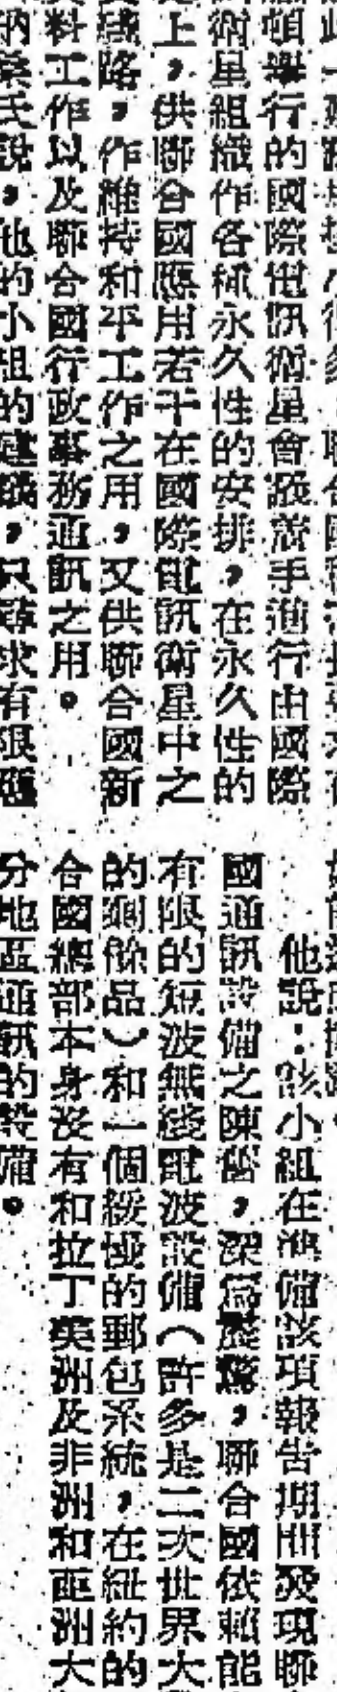 頓舉行的國際電訊衛星會議着手進行由國際
衛星組織作各種永久性的安排，在永久性的
上，供聯合國應用若干在國際電訊衛星中之
線路，作維持和平工作之用，又供聯合國新
料工作以及聯合國行政事務通訊之用。
氏說，他的小組的建議，只尋求有限
他說：該小組在準備該項報告期間發現聯
國通訊設備之陳舊，深爲震驚，聯合國依賴能
有限的短波無綫電波設備（許多是二次世界大
的剩餘品）和一個緩慢的郵包系統，在紐約的
合國總部本身沒有和拉丁美洲及非洲和亞洲大
分地區通訊的設備。